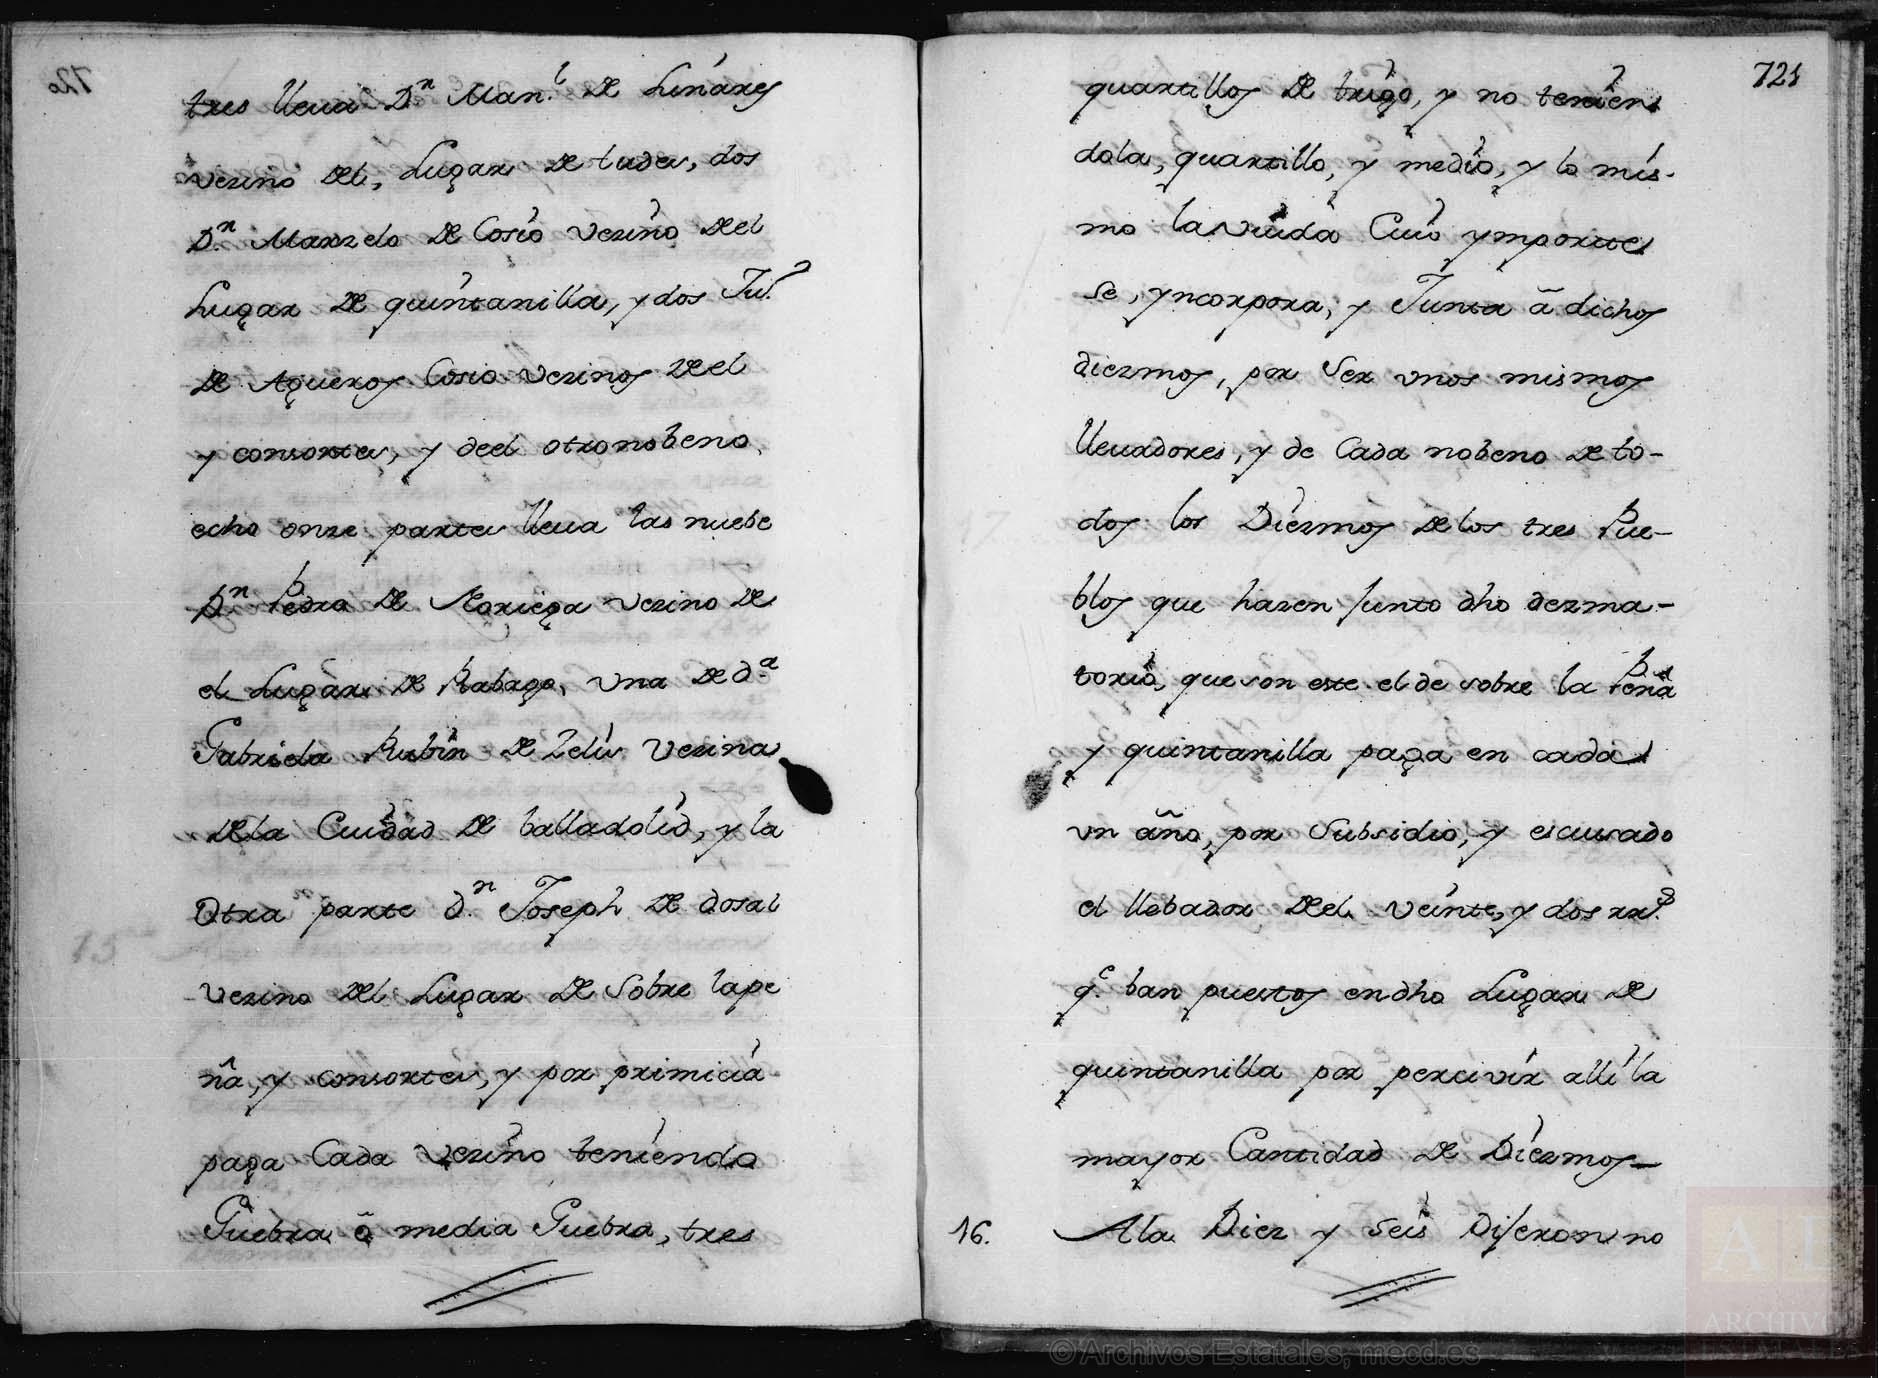 tres lleua D.n Man.l de Linares
vezino del Lugar de tudes, dos
D.n Marzelo de Cosio vezino del
Lugar de quintanilla, y dos Ju.º
de Agueros Cosio vezinos deel
y consortes, y deel otro nobeno
echo onze partes lleua las nuebe
D.n Pedro de Noriega vezino de
el Lugar de Rabago, vna de d.a
Gabriela Rubin de Zelis vezina
dela Ciudad de balladolid, y la
Otra parte d.n Joseph de dosal
vezino del Lugar de Sobre lape
ña, y consortes, y por primicia
paga Cada vezino teniendo
Guebra ô media Guebra, tres
721
quartillos de trigo, y no tenien
dola, quartillo, y medio, y lo mis-
mo la viuda Cuio ymporte
se, yncorpora, y Junta â dichos
diezmos, por Ser vnos mismos
lleuadores, y de Cada nobeno de to-
dos los Diezmos de los tres Pue-
blos que hazen Junto dho dezma-
torio, que son este el de sobre la Peña
y quintanilla paga en cada
vn año, por Subsidio, y escusado
el llebador del veinte, y dos rr.s
q.e ban puestos en dho Lugar de
quintanilla por percivir alli la
mayor Cantidad de Diezmos—
16. Ala Diez y Seis Dijeron no
© Archivos Estatales, mecd.es